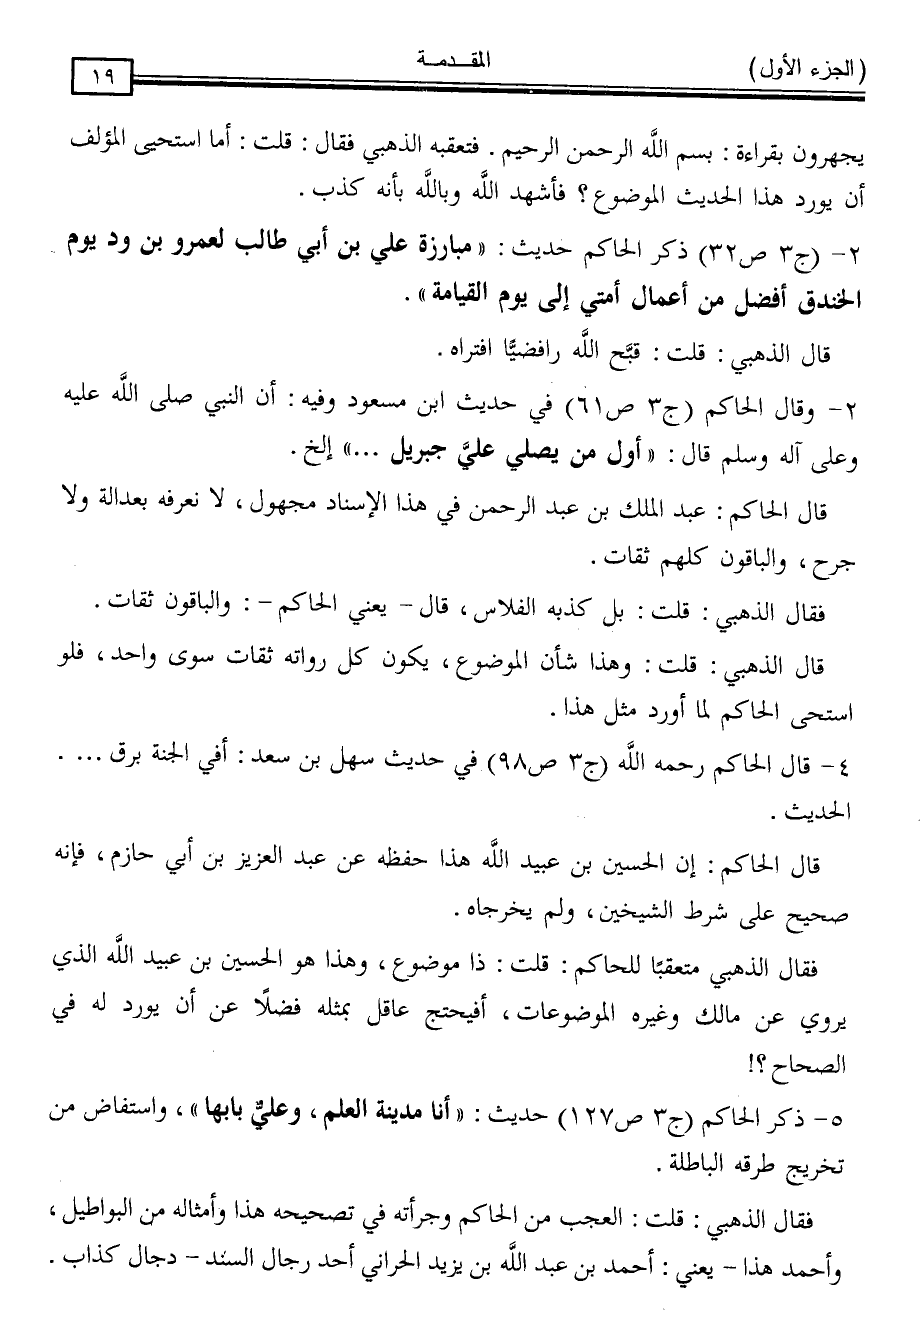 (الجزء الأول)
المقـدمـة
١٩
يجهرون بقراءة : بسم اللَّه الرحمن الرحيم . فتعقبه الذهبي فقال : قلت : أما استحيى المؤلف
أن يورد هذا الحديث الموضوع ؟ فأشهد اللَّه وباللَّه بأنه كذب .
٢- (ج٣ ص٣٢) ذكر الحاكم حديث : « مبارزة علي بن أبي طالب لعمرو بن ود يوم
الخندق أفضل من أعمال أمتي إلى يوم القيامة» .
قال الذهبي : قلت : قبَّح اللَّه رافضيًّا افتراه .
٢- وقال الحاكم (ج٣ ص٦١) في حديث ابن مسعود وفيه : أن النبي صلى اللَّه عليه
وعلى آله وسلم قال : « أول من يصلي عليَّ جبريل ...» إلخ .
قال الحاكم : عبد الملك بن عبد الرحمن في هذا الإسناد مجهول ، لا نعرفه بعدالة ولا
جرح ، والباقون كلهم ثقات .
فقال الذهبي : قلت : بل كذبه الفلاس ، قال - يعني الحاكم - : والباقون ثقات .
قال الذهبي : قلت : وهذا شأن الموضوع ، يكون كل رواته ثقات سوى واحد ، فلو
استحى الحاكم لما أورد مثل هذا .
٤- قال الحاكم رحمه اللَّه (ج٣ ص٩٨) في حديث سهل بن سعد : أفي الجنة برق ... .
الحديث .
قال الحاكم : إن الحسين بن عبيد اللَّه هذا حفظه عن عبد العزيز بن أبي حازم ، فإنه
صحيح على شرط الشيخين ، ولم يخرجاه .
فقال الذهبي متعقبًا للحاكم : قلت : ذا موضوع ، وهذا هو الحسين بن عبيد اللَّه الذي
يروي عن مالك وغيره الموضوعات ، أفيحتج عاقل بمثله فضلًا عن أن يورد له في
الصحاح ؟!
٥- ذكر الحاكم (ج٣ ص١٢٧) حديث : « أنا مدينة العلم ، وعليٌّ بابها» ، واستفاض من
تخريج طرقه الباطلة .
فقال الذهبي : قلت : العجب من الحاكم وجرأته في تصحيحه هذا وأمثاله من البواطيل ،
وأحمد هذا - يعني : أحمد بن عبد اللَّه بن يزيد الحراني أحد رجال السند - دجال كذاب .